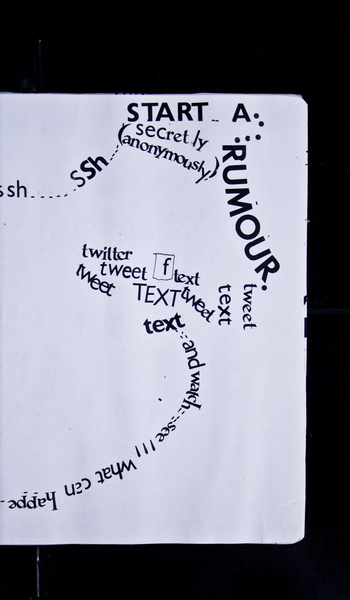 ssh......ssh
START.. A
(secretly
anonymously)
RUMOUR.
twitter
tweet tweet f text
TEXT tweet text tweet
text
...and watch...see!!! what can happe